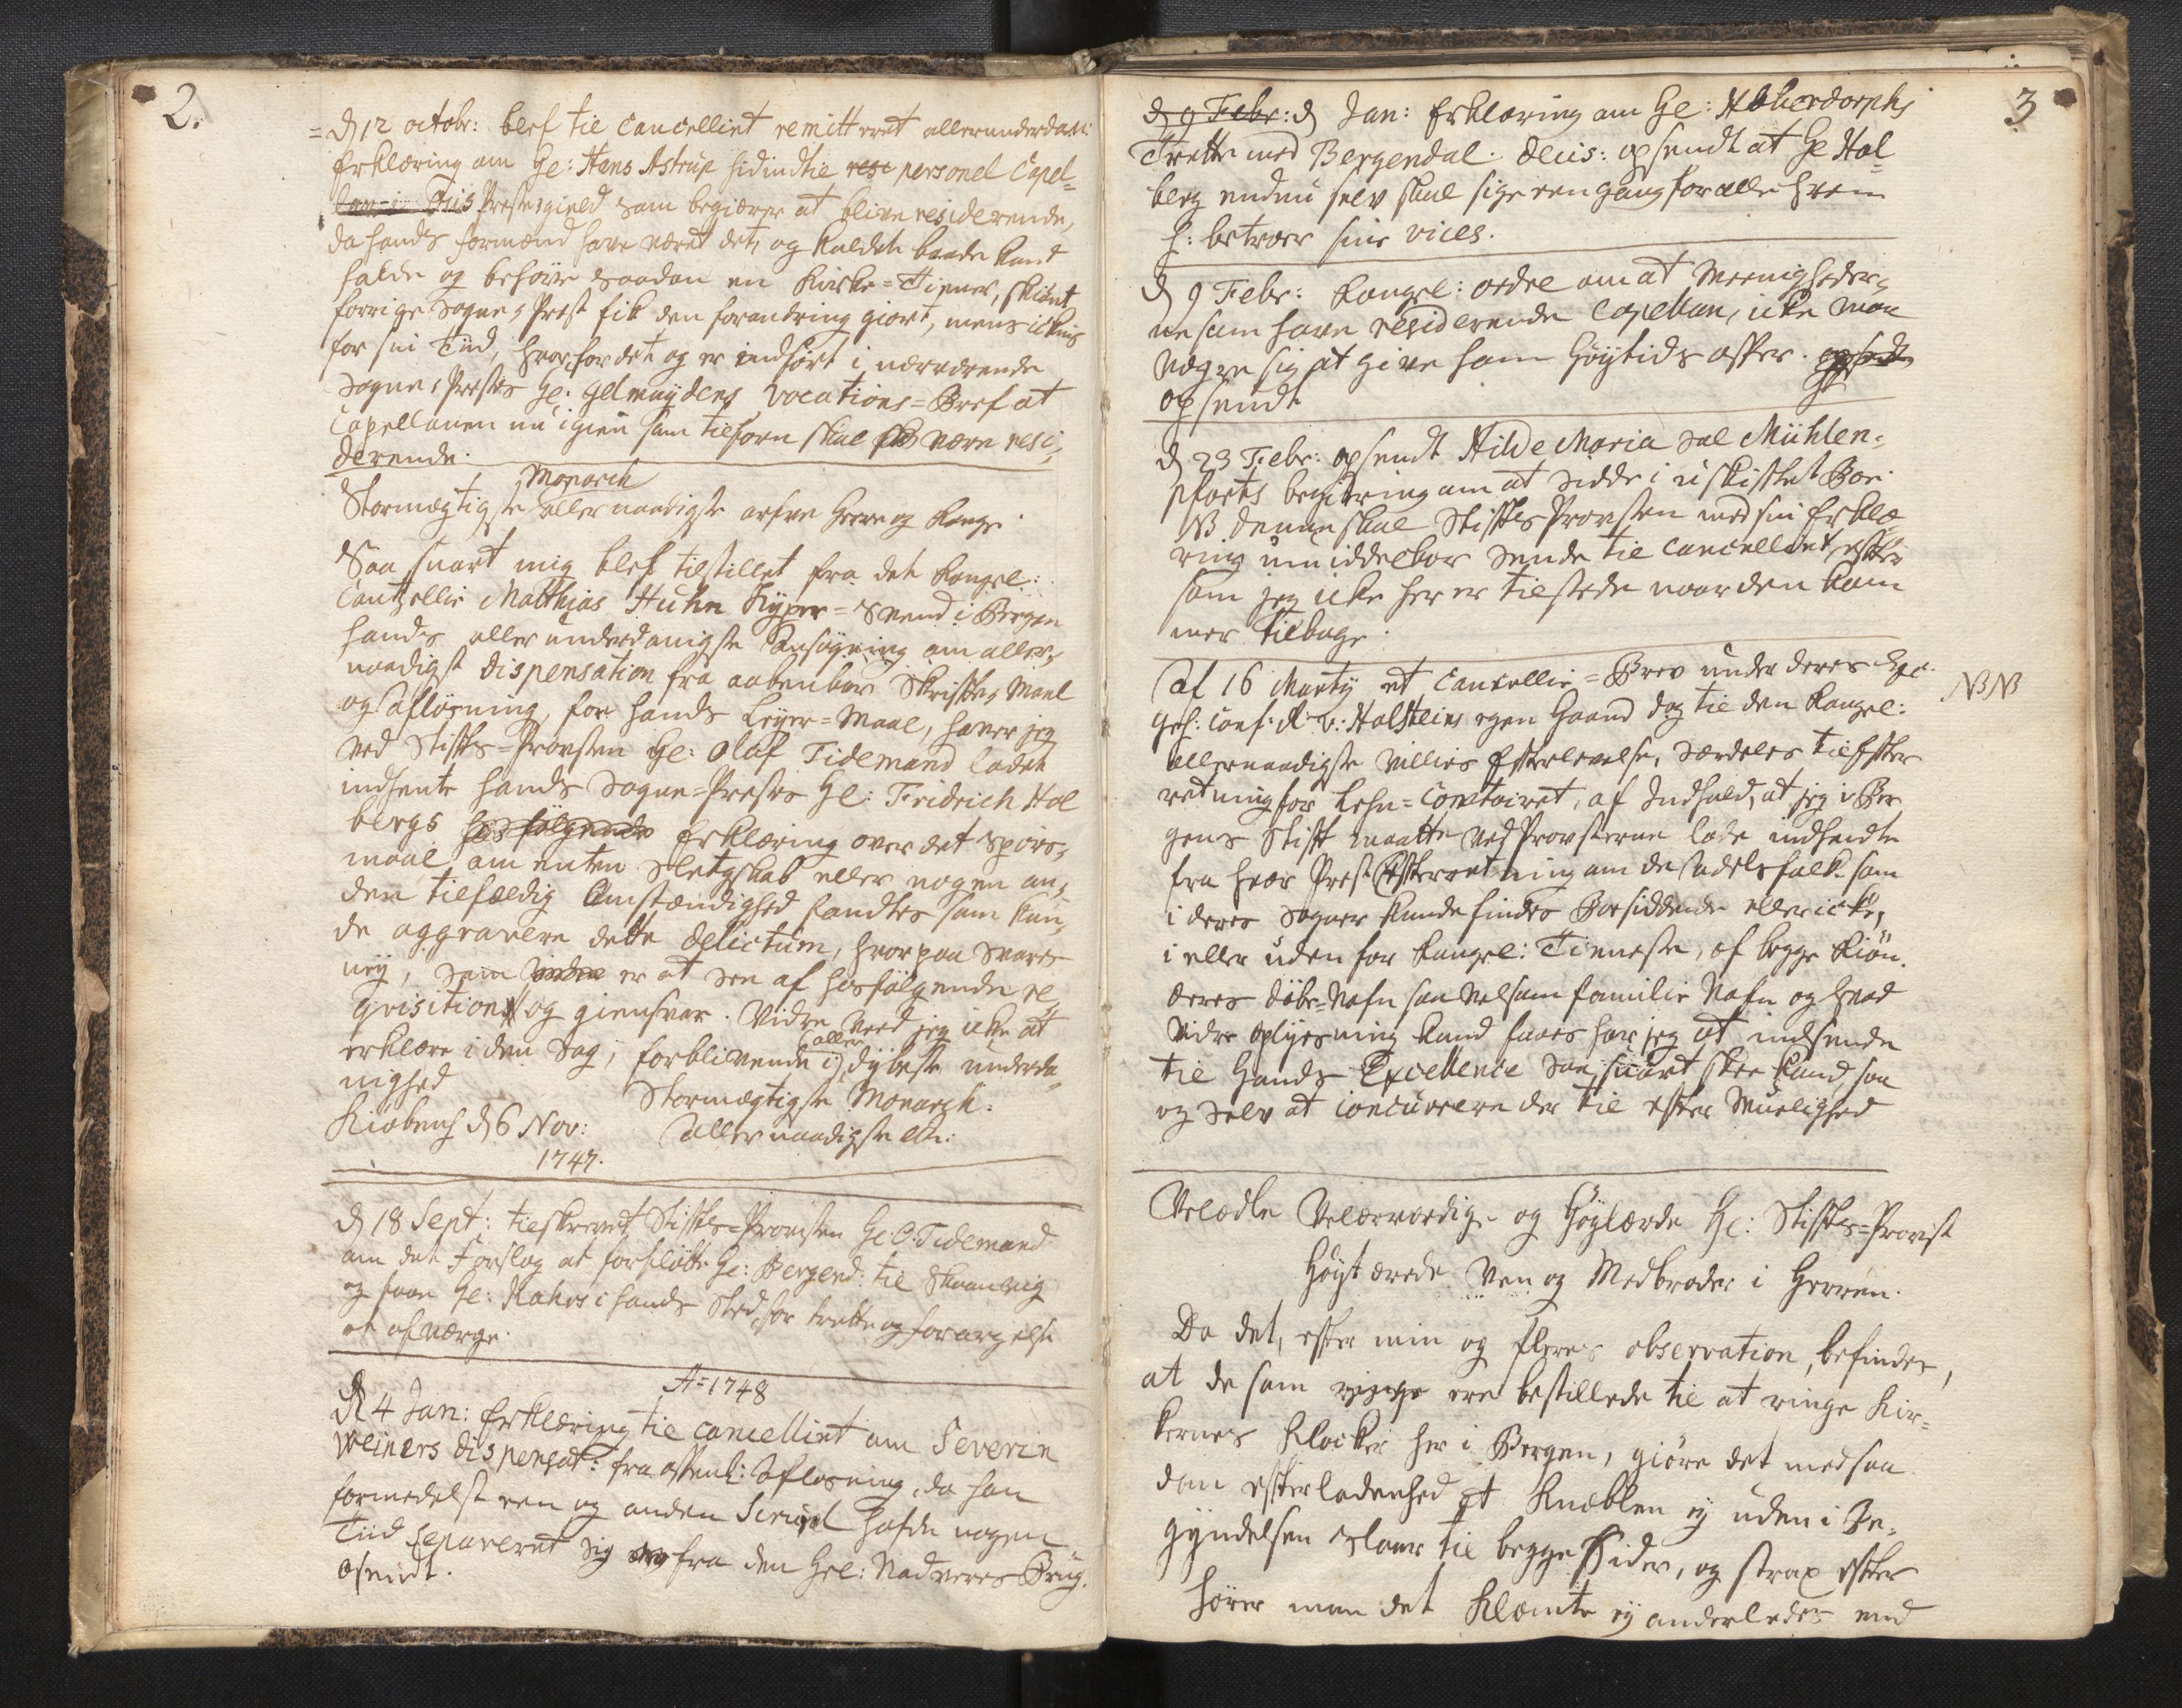 2.
= d 12 octobr: blef til Cancelliet remitteret allerunderdan:
Erklæring om Hr: Hans Astrup hidindtil resi personel Capel=
lan i Fris Præstegield som begiærer at blive residerende,
da hands formænd have været det, og Kaldet baade kand
holde og behöve saadan en Kirke=Tiener, skiönt
forrige Sogne Præst fik den forandring giort, mens ickuns
for sin Tiid, hvorfor det og er indfört i nærværende
Sogne Præstes Hr: Gelmuydens Vocations=Bref at
Capellanen nu igien som tilforn skal være resi=
derende.
Monarch
Stormægtigste allernaadigste arfve Herre og Konge
Saa snart mig blef tilstillet fra det kongel:
Cantzellie Matthias Huhn Kyper=Svend i Bergen
hands allerunderdanigste Ansögning om aller=
naadigst Dispensation fra aabenbar Skrifte Maal
og Aflösning, for hands Leyer=Maal, haver jeg
ved Stifts=Provsten Hr: Olaf Tidemand ladet
indhente hands Sogne=Præstes Hr: Fridrich Hol
bergs hos fölgende Erklæring over det Spörs=
maal, om enten Sletgskab eller nogen an=
den tilfældig Omstændighed fandtes som kun=
de aggravere dette Delictum, hvorpaa svares
ney, som er at see af hosfölgende re=
qvisition og giensvar. Videre veed jeg icke at
erklære i den Sag, forblivende i aller dybeste underda=
nighed
Stormægtigste Monarch:
Kiöbenh d 6 Nov:
Allernaadigste etc:
1747.
d 18 Sept: tilskrevet Stifts=Provsten Hr. O. Tidemand
om det Forslag at forflötte Hr: Bergend: til Skaanevig
og faae Hr: Rahrs i hands Sted, for trætte og forargelse
at afværge.
A=1748
d 4 Jan: Erklæring til Cancelliet om Severin
Weiners dispensat: fra offentl: Aflösning, da han
formedelst een og anden Scrupel hafde nogen
Tiid separeret sig fra den Hel: Nadveres Brug.
Afsendt.
3
d 9 Febr: d Jan: Erklæring om Hr: Abherdorphs
Trette med Bergendal. Decis: opsendt at Hr Hol=
berg endnu selv skal sige een gang for alle hvem
h: betroer sine vices.
d 9 Febr: kongel: ordre om at Meenigheder=
ne som have residerende Capellan, icke maa
vægre sig at give ham Höytids offer.
opsendt
d 23 Febr: opsendt Hilde Maria Sal Mühlen=
phorts begiæring om at sidde i uskiftet Boe.
NB denne skal Stifts Provsten med sin Erklæ=
ring umiddelbar sende til Cancelliet efter
som jeg icke her er tilstede naar den kom
mer tilbage.
Af 16 Marty et Cancellie=Brev under deres Exc. NB NB
Geh: Conf: R: v: Holsteins egen Haand dog til den kongel:
allernaadigste Villies Efterlevelse, særdeles til Efter
retning for Lehn=Contoiret, af Indhold, at jeg i Ber
gens Stift maatte ved Provsterne lade indhendte
fra hver Præst Efterretning om de Adelsfolk som
i deres Sogner kunde findes Boesiddende eller icke,
i eller uden for kongel: Tieneste, af begge Kiön.
deres döbe=Nafn saa vel som familie Nafn og hvad
vidre oplysning kand faaes har jeg at indsende
til Hands Excellence saa snart skee kand, saa
og selv at concurrere der til efter Muelighed
Velædle Velærværdige og Höylærde Hr: Stifts=Provst
Höyt ærede Ven og Medbroder i Herren.
Da det, efter min og fleres observation, befindes,
at de som ringe ere bestillede til at ringe Kir=
kernes Klocker her i Bergen, giöre det med saa
dan efterladenhed at Knæblen ey uden i Be=
gyndelsen slaaer til begge Sider, og strax efter
hörer man det Klæmte ey anderledes end